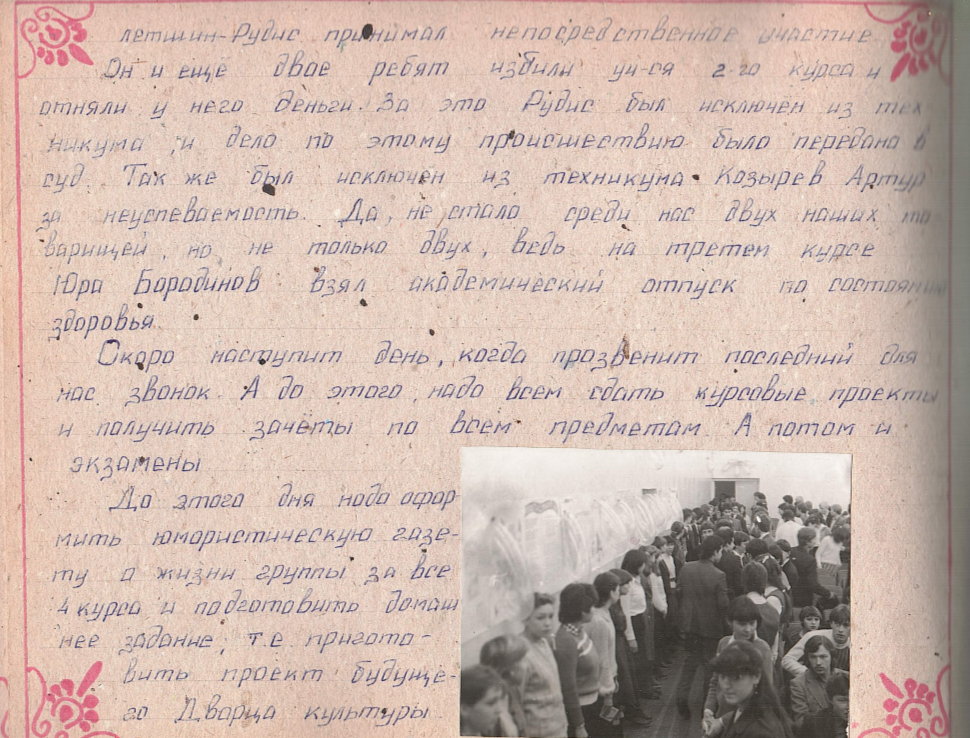 летшин-Рудис принимал непосредственное участие.
Он и еще двое ребят избили уч-ся 2-го курса и
отняли у него деньги. За это Рудис был исключен из тех
никума, и дело по этому происшествию было передано в
суд. Так же был исключен из техникума Козырев Артур
за неуспеваемость. Да, не стало среди нас двух наших то
варищей, но не только двух, ведь на третем курсе
Юра Бородинов взял академический отпуск по состоянию
здоровья.
Скоро наступит день, когда прозвенит последний для
нас звонок. А до этого надо всем сдать курсовые проекты
и получить зачеты по всем предметам. А потом и
экзамены
До этого дня надо офор-
мить юмористическую газе-
ту о жизни группы за все
4 курса и подготовить домаш
нее задание, т.е пригото-
вить проект будуще-
го Дварца культуры.